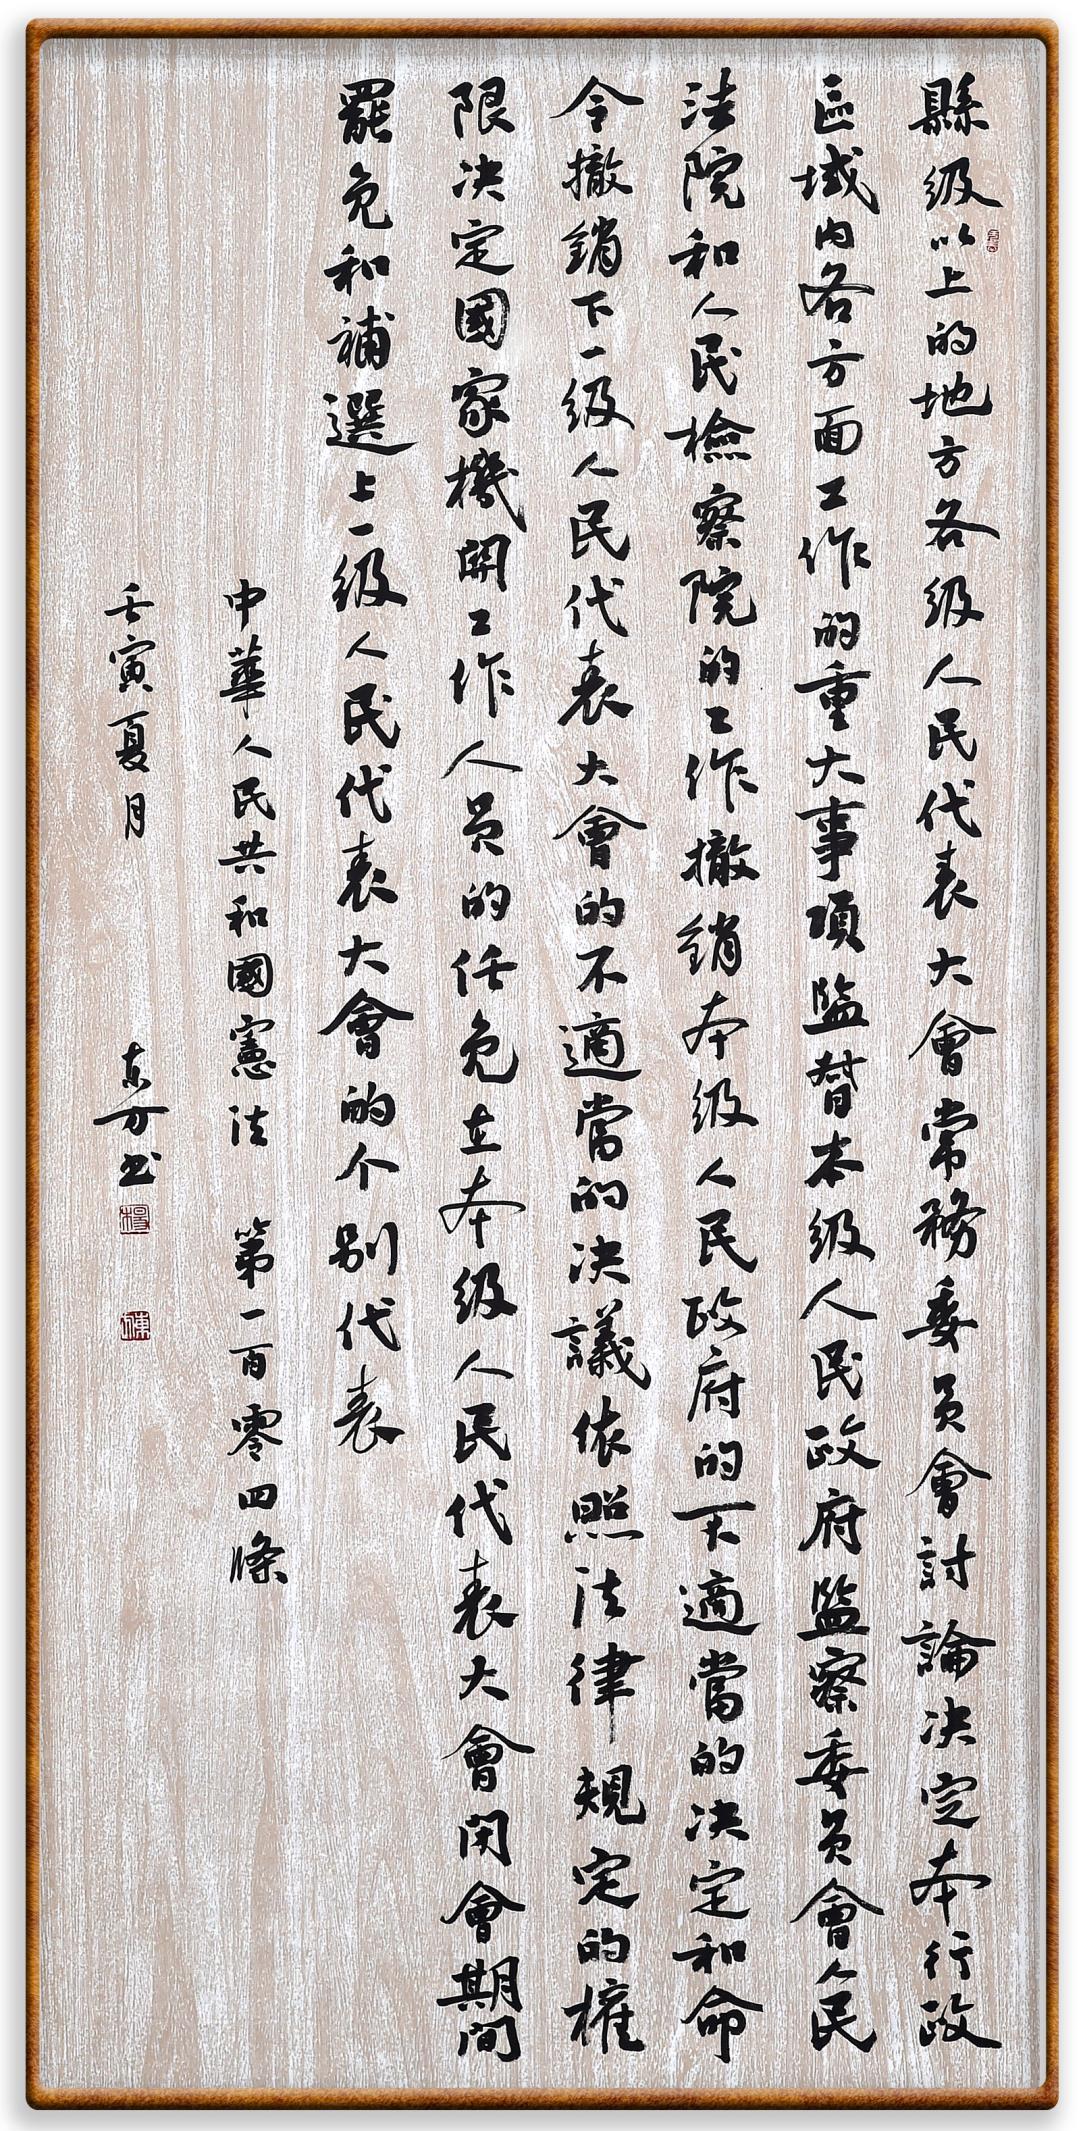 縣级以上的地方各级人民代表大會常務委员會討論决定本行政
區域内各方面工作的重大事項監督本级人民政府監察委员會人民
法院和人民檢察院的工作撤銷本级人民政府的不適當的决定和命
令撤銷下一级人民代表大會的不適當的决議依照法律規定的權
限决定國家機関工作人员的任免立本级人民代表大會闭會期間
罷免和補選上一级人民代表大會的个别代表
中華人民共和國憲法 第一百零四條
壬寅夏月 东方书